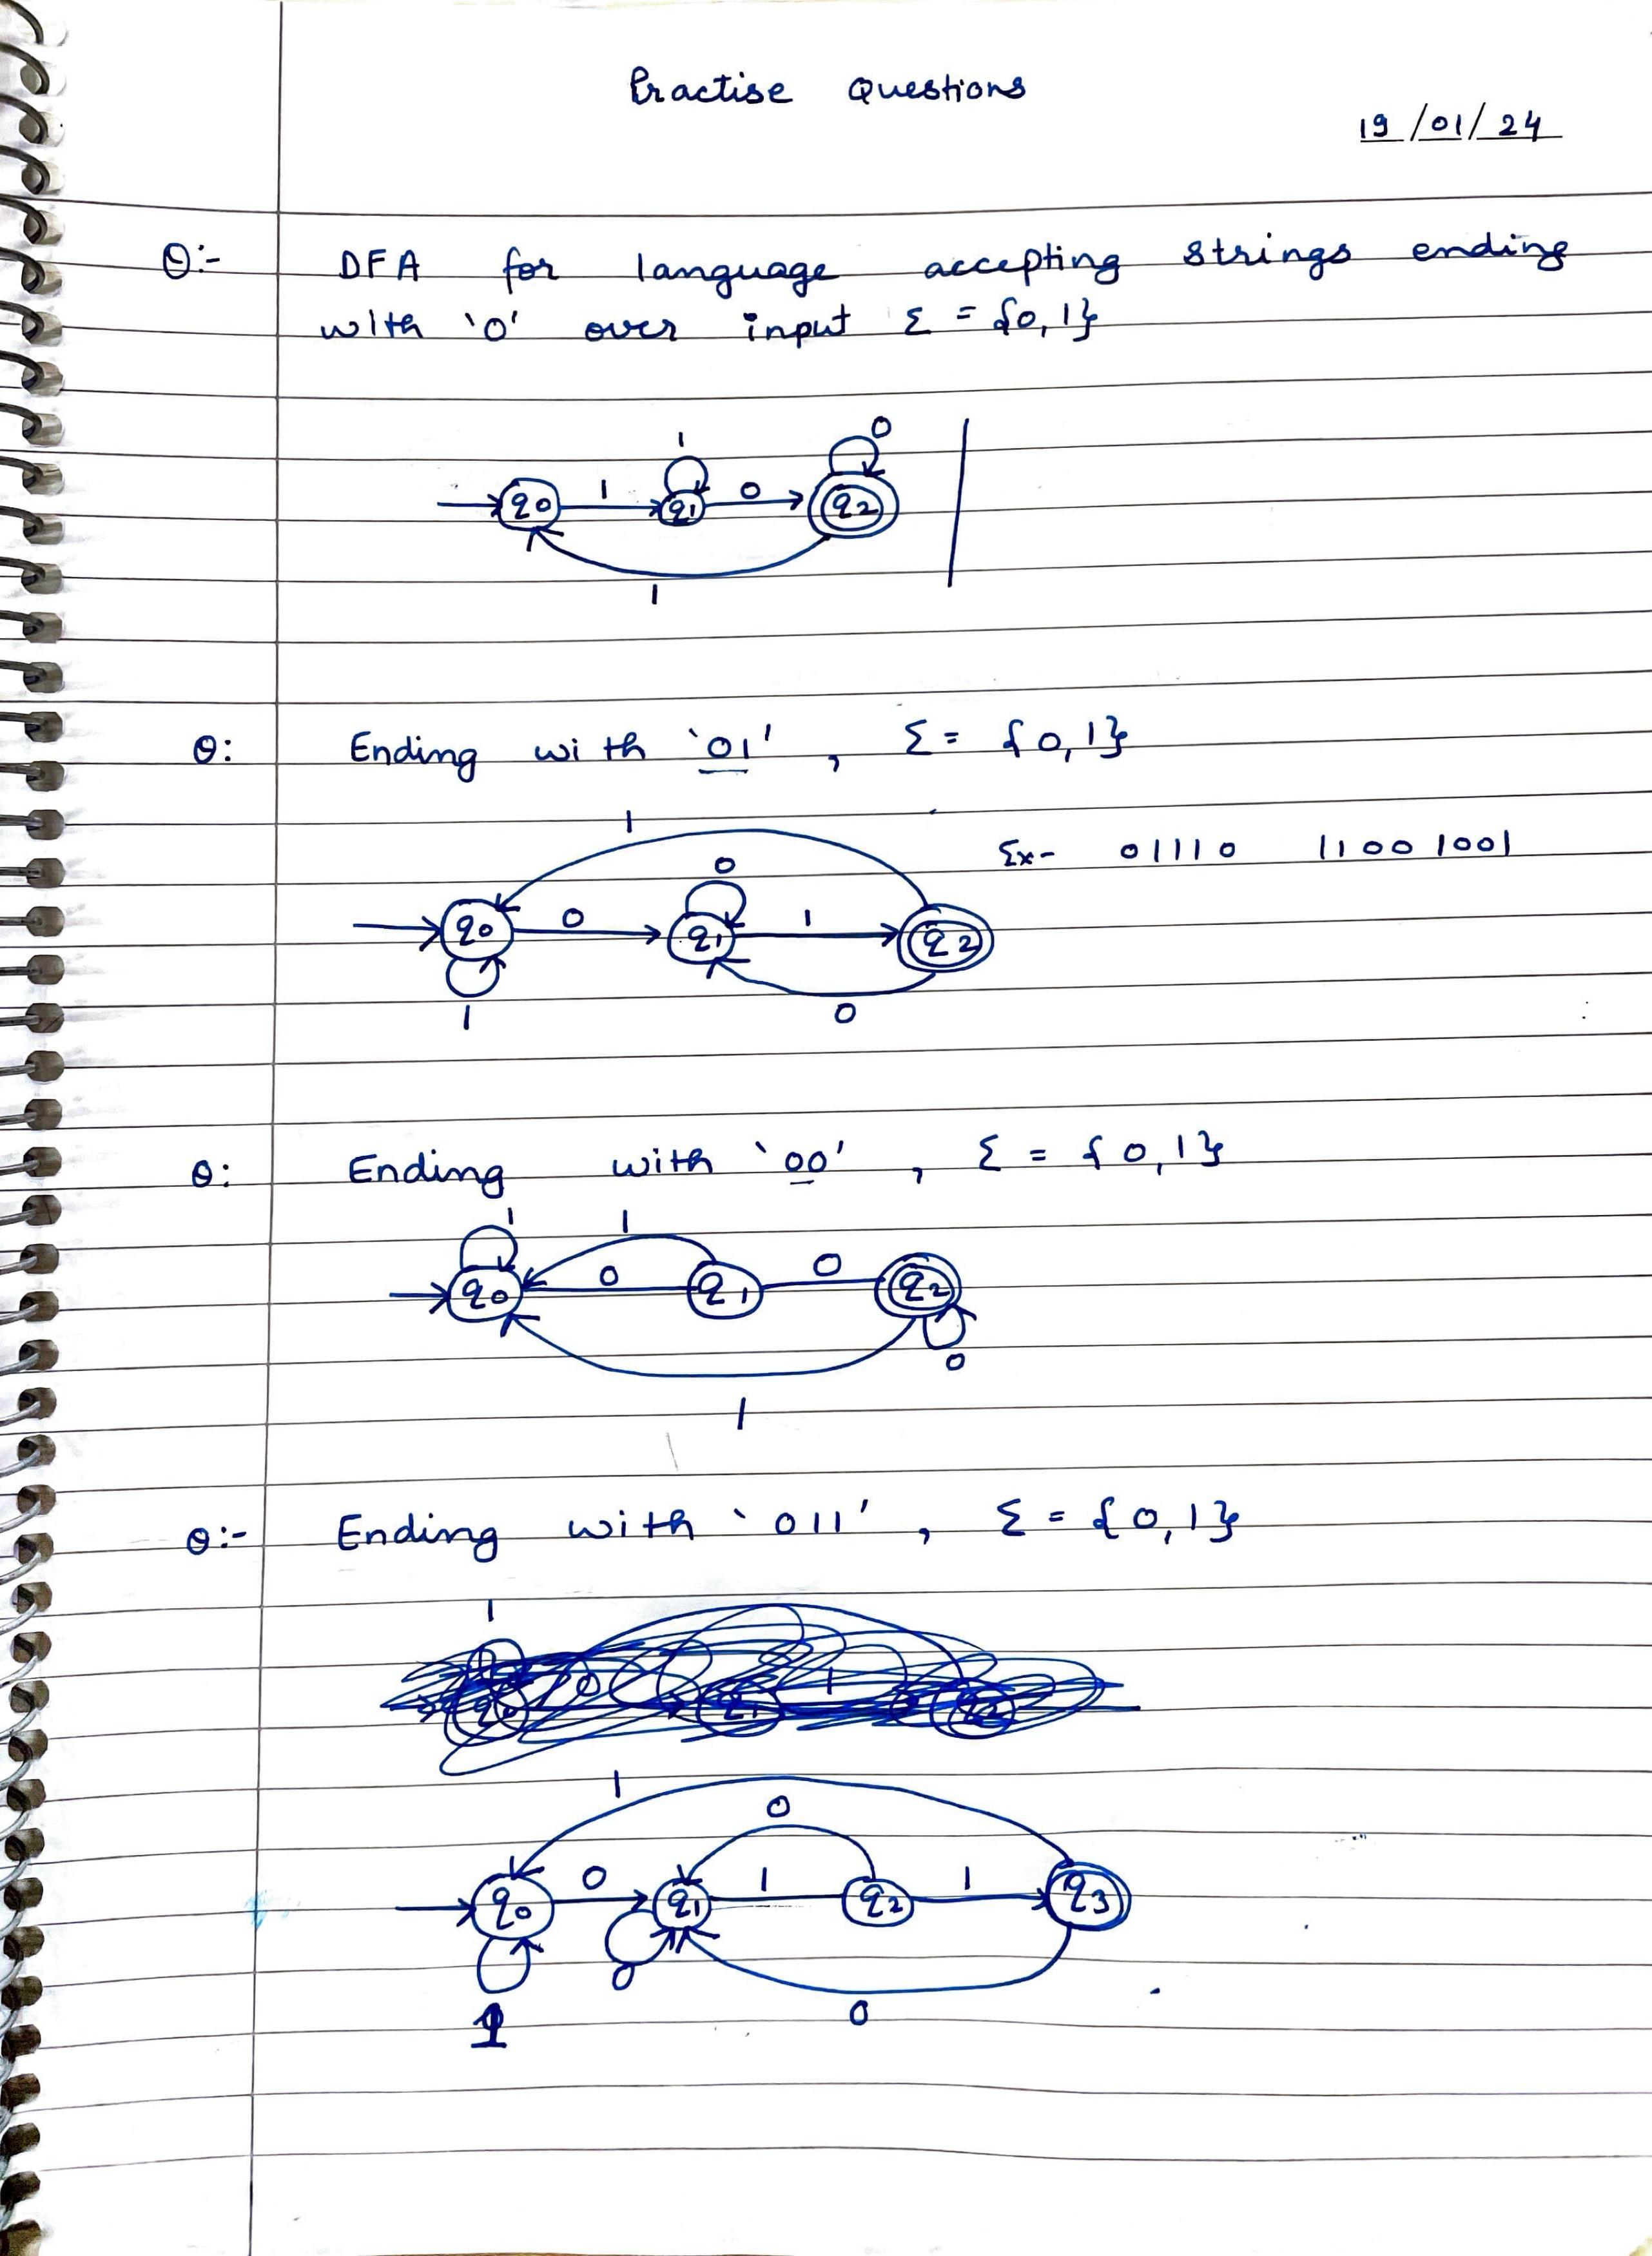 Practise Questions
19/01/24
Q:- DFA for language accepting strings ending
with '0' over input Σ = {0,1}
1 0
q0 1 q1 0 q2
1
Q: Ending with '01' , Σ = {0,1}
1
Ex- 01110 11001001
0
q0 0 q1 1 q2
1 0
Q: Ending with '00' , Σ = {0,1}
1 1
q0 0 q1 0 q2
0
1
Q:- Ending with '011' , Σ = {0,1}
1
q0 0 q1 1 q2
1
0
q0 0 q1 1 q2 1 q3
0
1 0